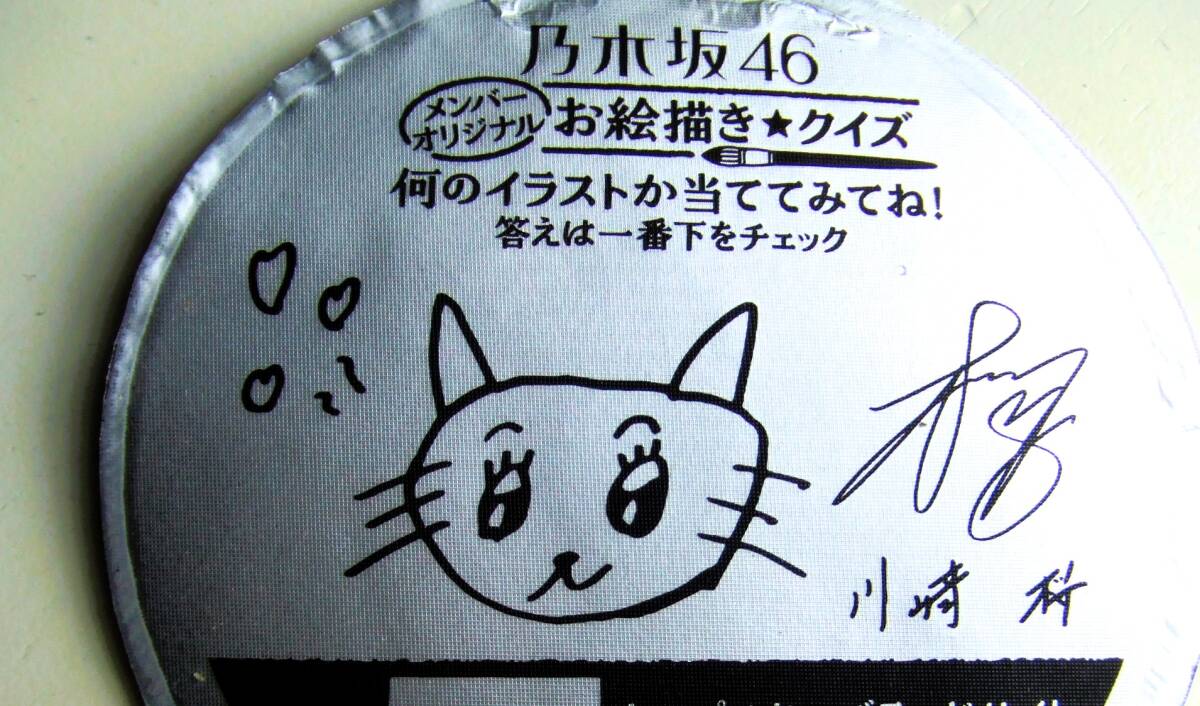 乃木坂46
メンバー
オリジナル
お絵描き★クイズ
何のイラストか当ててみてね!
答えは一番下をチェック
川﨑 桜